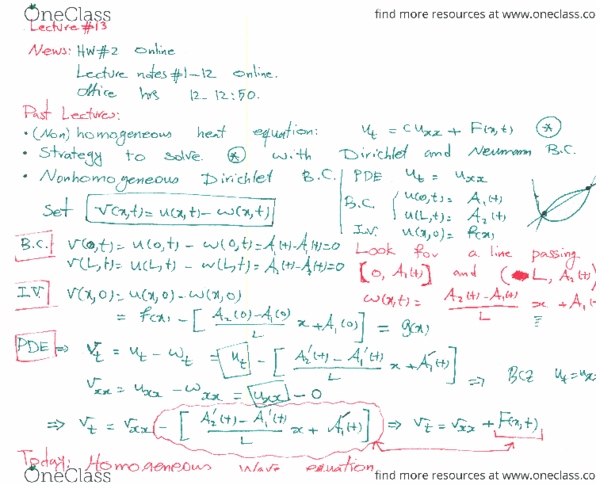 OneClass
find more resources at www.oneclass.co
Lecture #13
News: HW#2 online
Lecture notes #1-12 online.
office hrs 12-12:50.
Past Lecture:
• (Non)homogeneous heat equation: u_t = c u_xx + F(x,t) (*)
• Strategy to solve (*) with Dirichlet and Neumann B.C.
• Nonhomogeneous Dirichlet B.C. | PDE u_t = u_xx
B.C. { u(0,t) = A_1(t)
Set V(x,t) = u(x,t) - w(x,t)
u(L,t) = A_2(t)
I.V. u(x,0) = f(x)
B.C. V(0,t) = u(0,t) - w(0,t) = A_1(t) - A_1(t) = 0
V(L,t) = u(L,t) - w(L,t) = A_2(t) - A_2(t) = 0
Look for a line passing
[0, A_1(t)] and (L, A_2(t)
I.V. V(x,0) = u(x,0) - w(x,0)
w(x,t) = (A_2(t) - A_1(t))/L x + A_1(
= f(x) - [(A_2(0) - A_1(0))/L x + A_1(0)] = g(x)
PDE ⇒ V_t = u_t - w_t = u_t - [(A_2'(t) - A_1'(t))/L x + A_1'(t)]
V_xx = u_xx - w_xx = u_xx - 0 ⇒ BCZ u_t = u_x
⇒ V_t = V_xx - [(A_2'(t) - A_1'(t))/L x + A_1'(t)] ⇒ V_t = V_xx + F(x,t)
Today: Homogeneous wave equation
OneClass
find more resources at www.oneclass.co